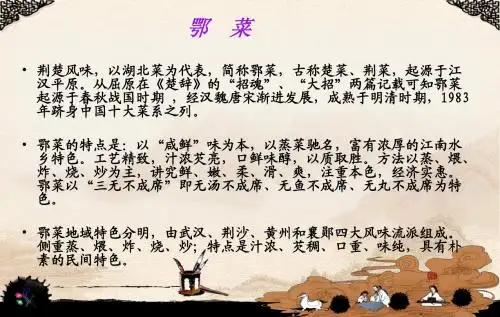 鄂 菜
• 荆楚风味，以湖北菜为代表，简称鄂菜，古称楚菜、荆菜，起源于江
汉平原。从屈原在《楚辞》的“招魂”、“大招”两篇记载可知鄂菜
起源于春秋战国时期 ，经汉魏唐宋渐进发展，成熟于明清时期，1983
年跻身中国十大菜系之列。
• 鄂菜的特点是：以“咸鲜”味为本，以蒸菜驰名，富有浓厚的江南水
乡特色。工艺精致，汁浓芡亮，口鲜味醇，以质取胜。方法以蒸、煨、
炸、烧、炒为主，讲究鲜、嫩、柔、滑、爽，注重本色，经济实惠。
鄂菜以“三无不成席”即无汤不成席、无鱼不成席、无丸不成席为特
色。
• 鄂菜地域特色分明，由武汉、荆沙、黄州和襄郧四大风味流派组成。
侧重蒸、煨、炸、烧、炒；特点是汁浓、芡稠、口重、味纯，具有朴
素的民间特色。